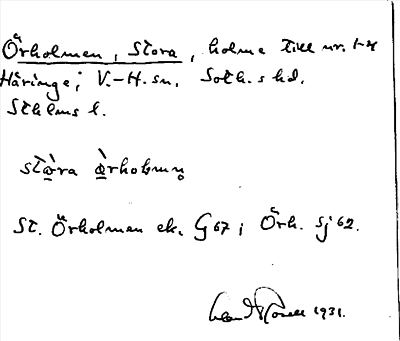 Örholmen, Stora, holme till nr. 1-4
Häringe, V.-H. sn. Soth.s hd.
Sthlms l.
stòra ö̀rholmen
St. Örholmen ek. G 67; Örh. Sj 62.
1931.